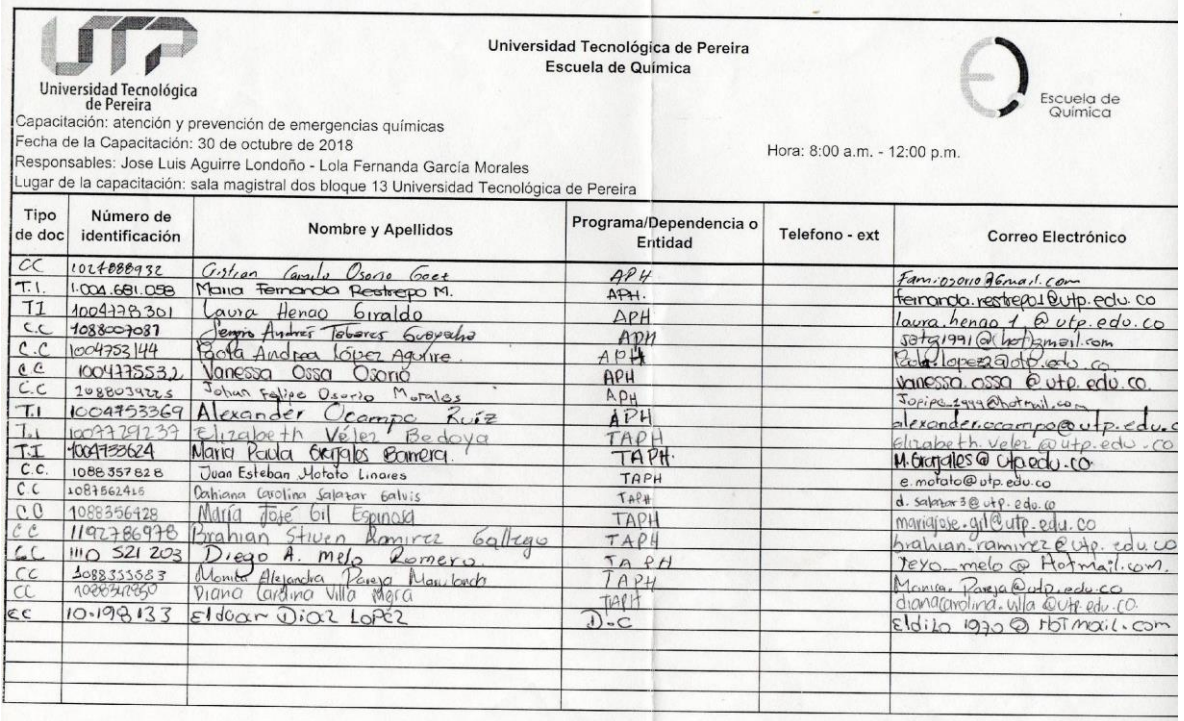 UTP
Universidad Tecnológica
de Pereira
Universidad Tecnológica de Pereira
Escuela de Química
Escuela de
Química
Capacitación: atención y prevención de emergencias químicas
Fecha de la Capacitación: 30 de octubre de 2018
Hora: 8:00 a.m. - 12:00 p.m.
Responsables: Jose Luis Aguirre Londoño - Lola Fernanda García Morales
Lugar de la capacitación: sala magistral dos bloque 13 Universidad Tecnológica de Pereira
Tipo de doc Número de identificación Nombre y Apellidos Programa/Dependencia o Entidad Telefono - ext Correo Electrónico
CC 1027888932 Camilo Osorio APH
T.I. 1.004.681.058 Maria Fernanda Restrepo M. APH. fernanda.restrepo1@utp.edu.co
TI 1004778301 Laura Henao Giraldo APH laura.henao1@utp.edu.co
C.C 1088007087 Sergio Andrés Tabares APH satg1991@hotmail.com
C.C 1004753144 Paola Andrea López Aguirre. APH
C.C 1004775532 Vanessa Ossa Osorio APH vanessa.ossa@utp.edu.co.
C.C Johan Felipe Osorio Morales APH Jopipe_1999@hotmail.com
T.I 1004753369 Alexander Ocampo Ruíz APH alexander.ocampo@utp.edu.c
T.I 1007729237 Elizabeth Vélez Bedoya TAPH elizabeth.velez@utp.edu.co
T.I 1004733624 Maria Paula Grajales Barrera. TAPH. M.Grajales@utp.edu.co.
C.C. 1088357828 Juan Esteban Motato Linares TAPH e.motato@utp.edu.co
C.C 1087562415 Dahiana Carolina Salazar Galvis TAPH d.salazar3@utp.edu.co
CC 1088356428 María José Gil Espinosa TAPH mariajose.gil@utp.edu.co
CC 1192786978 Brahian Stiven Ramirez Gallego TAPH brahian.ramirez@utp.edu.co
C.C 1110 521 203 Diego A. melo Romero. TAPH Yeyo_melo@Hotmail.com.
CC 1088353583 Monica Alejandra Pareja TAPH Monica.Pareja@utp.edu.co
CC Diana Carolina Villa TAPH dianacarolina.villa@utp.edu.co.
CC 10.198.133 Elduar Diaz LopÉz D.C Eldilo 1970@HoTmail.com